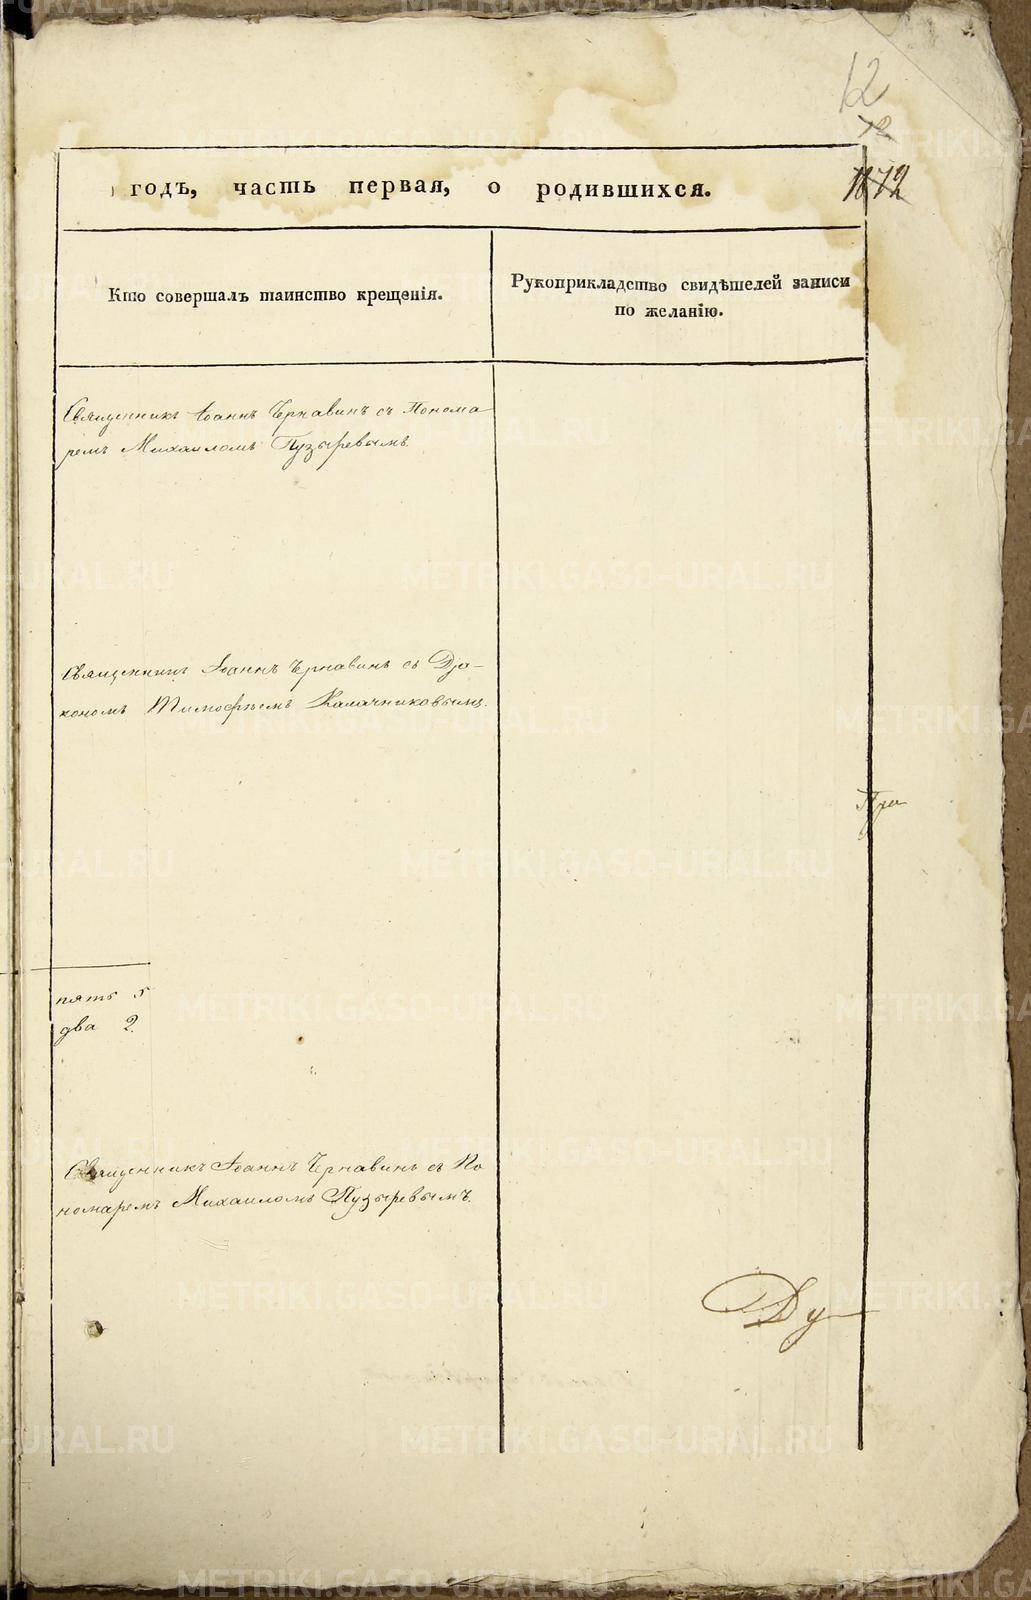 12
12
годъ, часть первая, о родившихся.
1872
Кто совершалъ таинство крещенія.
Рукоприкладство свидѣтелей записи
по желанію.
Священникъ Іоаннъ Чернавинъ съ Понома
ремъ Михаиломъ Пузыревымъ
Священникъ Іоаннъ Чернавинъ съ Дja-
кономъ Тимофѣемъ Калачниковымъ.
Пра
пять 5
два 2.
Священникъ Іоаннъ Чернавинъ съ По
номаремъ Михаиломъ Пузыревымъ.
Ду
METRIKI.GASO-URAL.RU